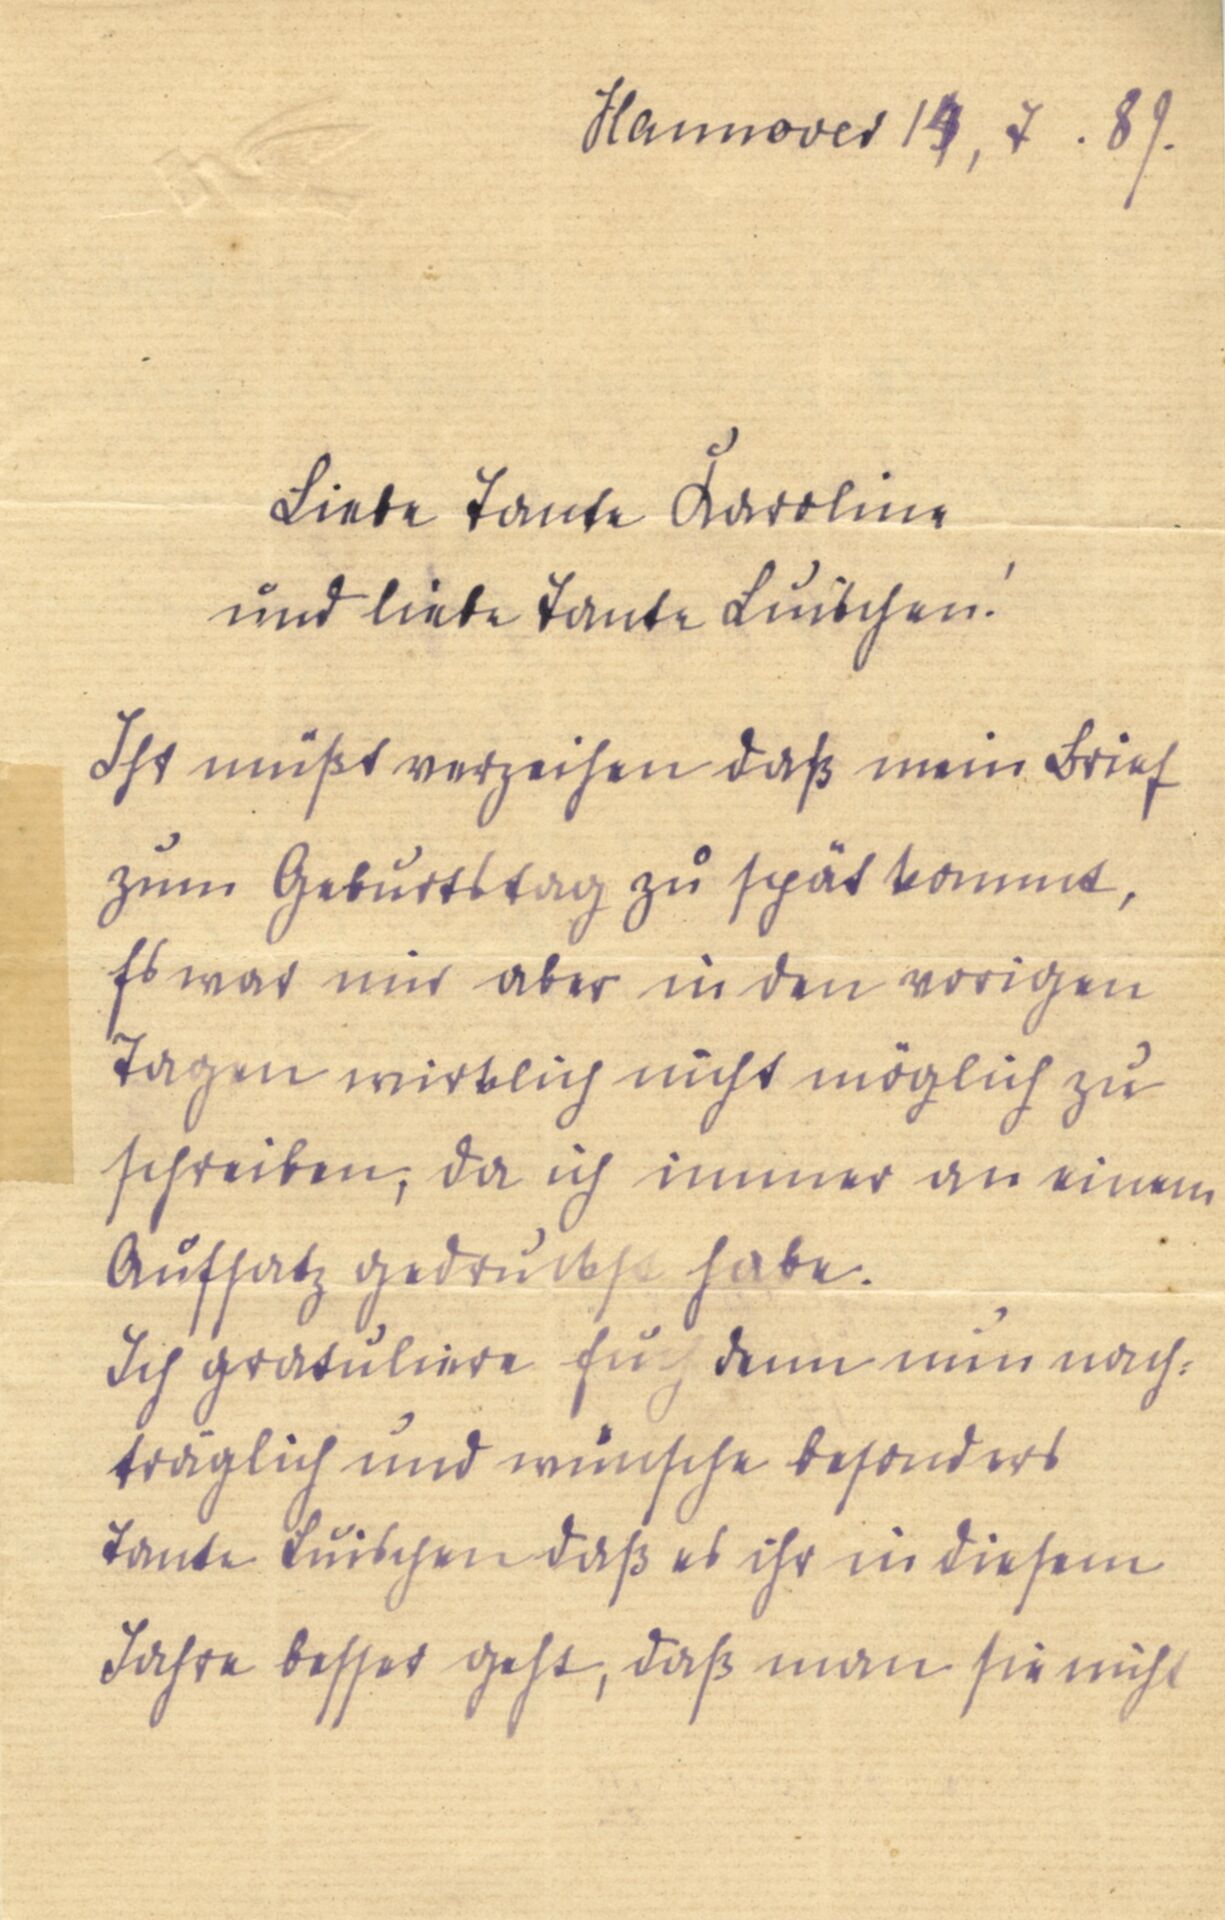 Hannover 14, 7. 89.
Liebe Tante Karoline
und liebe Tante Luischen!
Ihr müßt verzeihen daß mein Brief
zum Geburtstag zu spät kommt,
Es war mir aber in den vorigen
Tagen wirklich nicht möglich zu
schreiben, da ich immer an einem
Aufsatz gedruckst habe.
Ich gratuliere Euch denn nun nach-
träglich und wünsche besonders
Tante Luischen daß es ihr in diesem
Jahre besser geht, daß man sie nicht